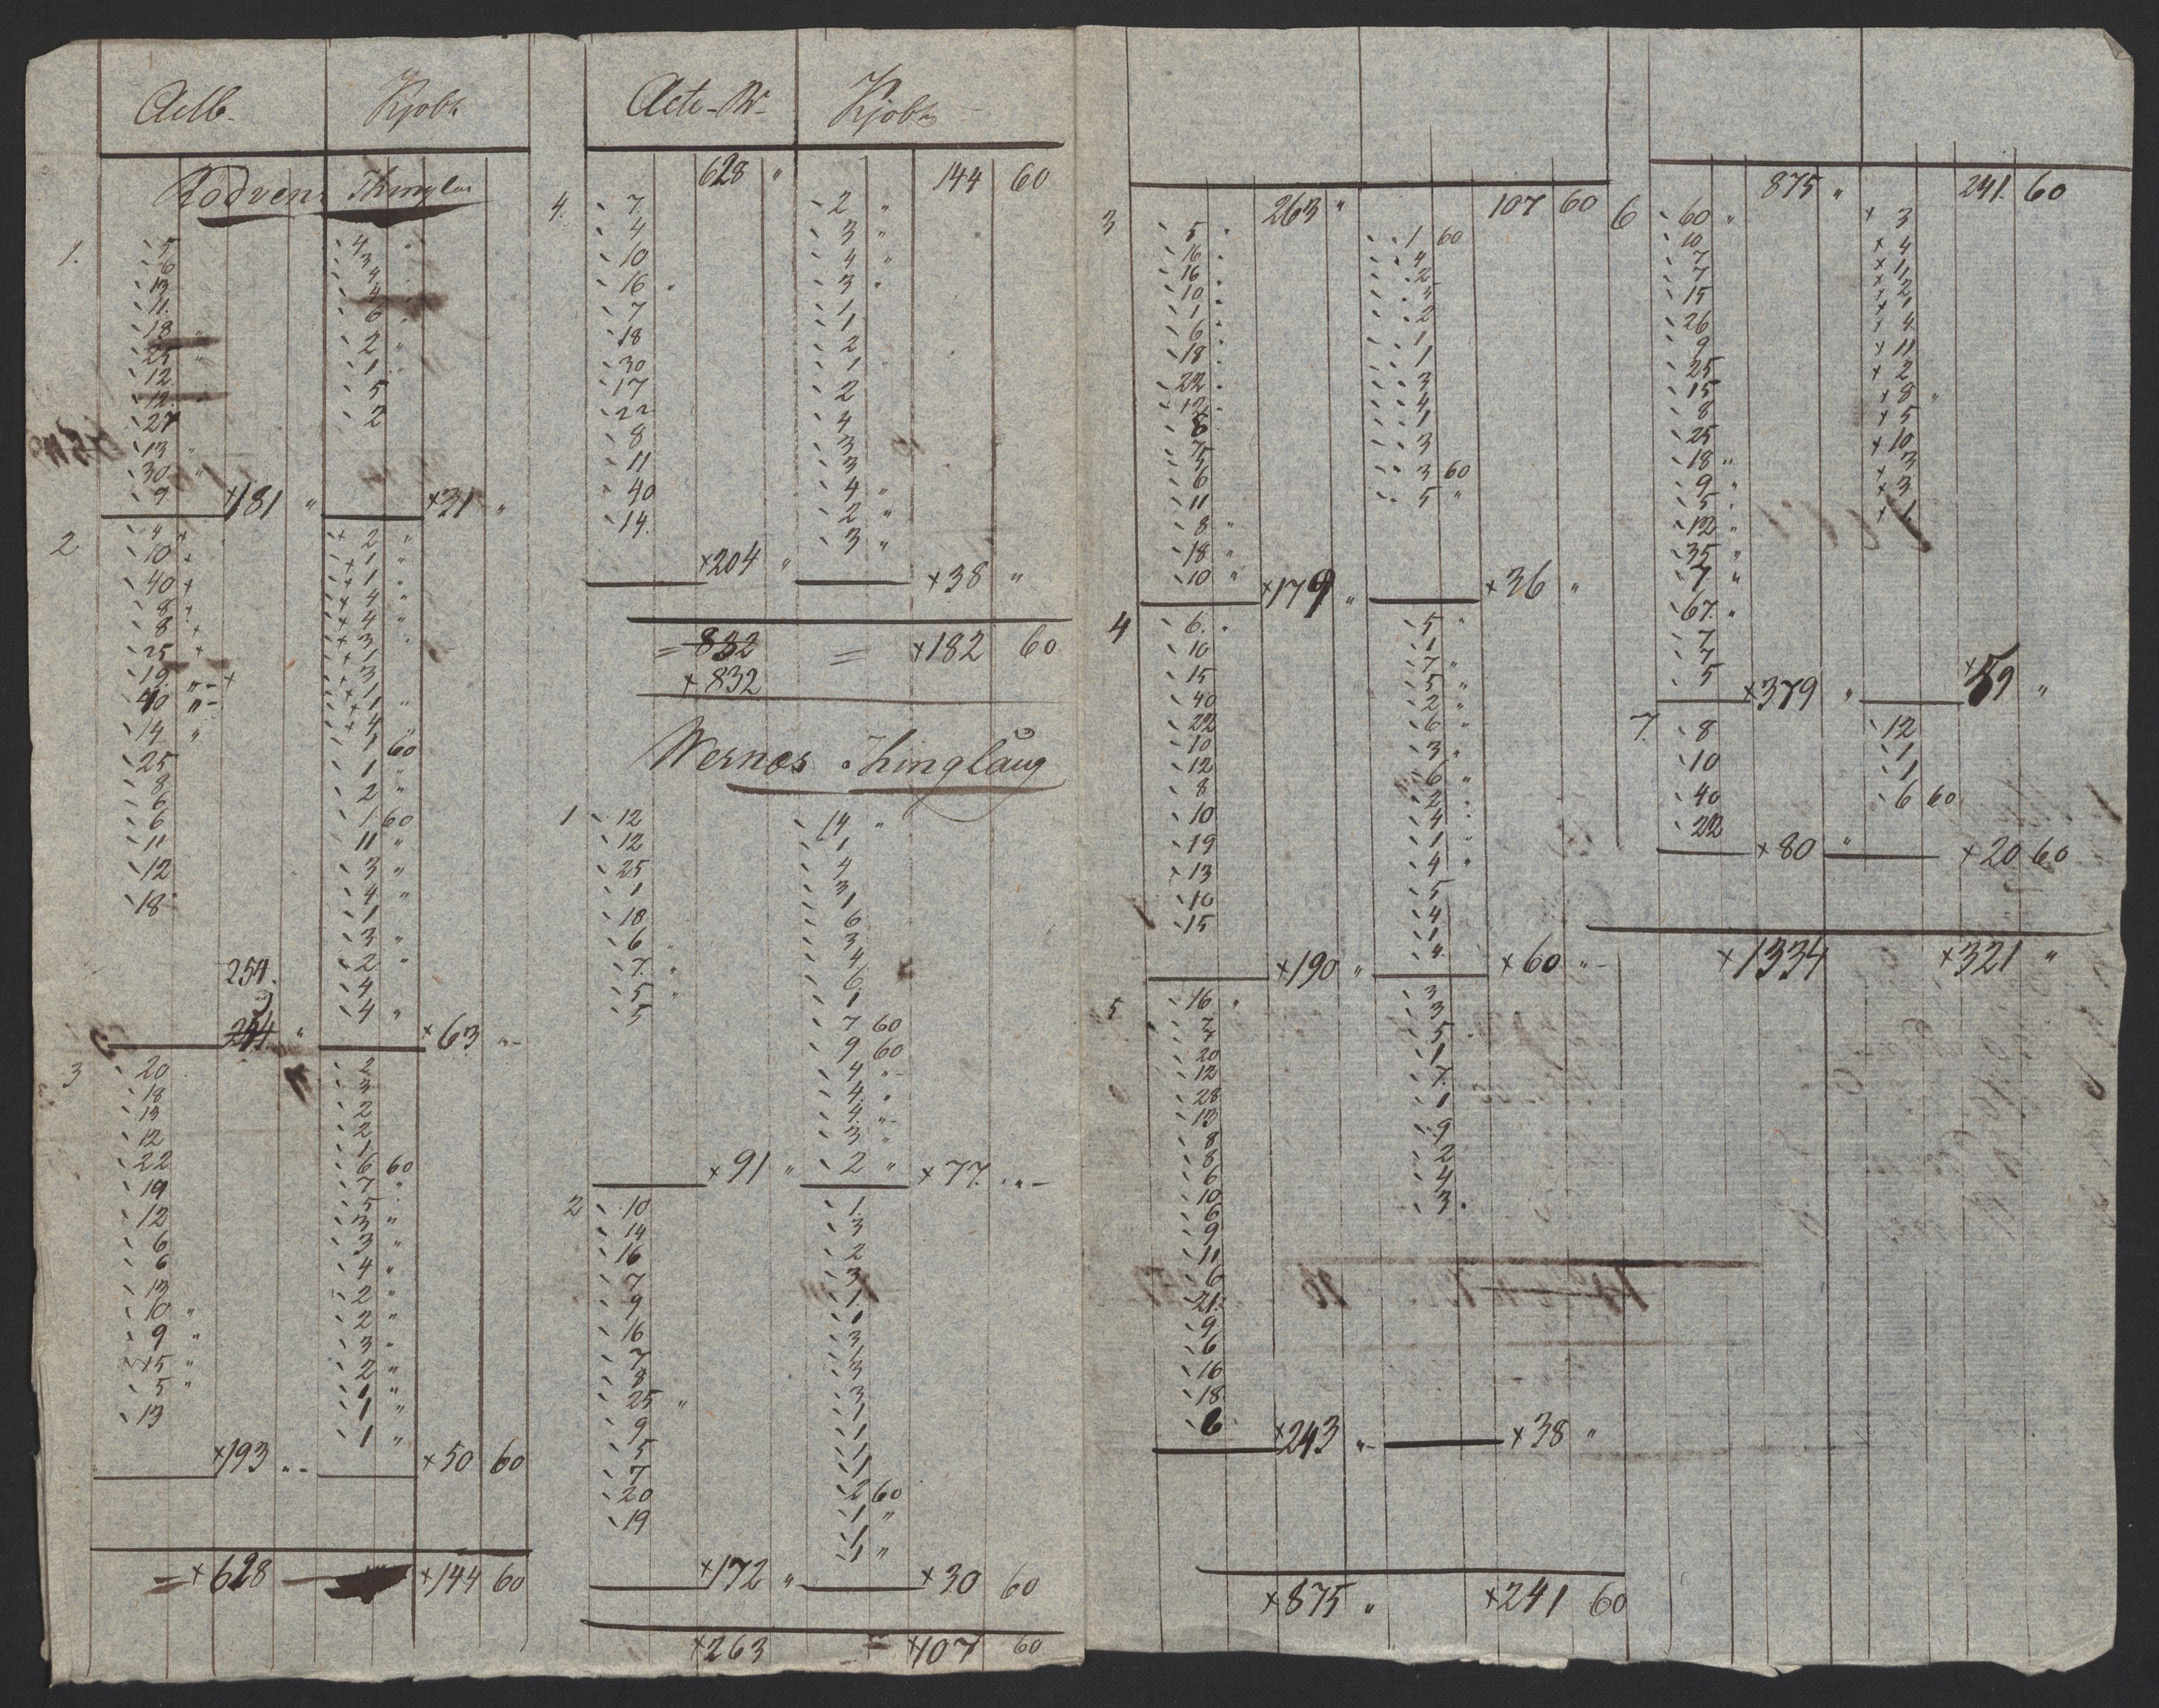 Aelb. Kjøbs
Rødvens Thinglau
1. 5 4 "
6 3
13 4
11. 4
18 " 6
25 " 2 "
12 1
12. 5
27 2
13 "
30 "
9 ×181 " ×31 "
2 4 × 2 "
10 × 1 "
40 × 1 "
8 × 4 "
8 × 4
25 × 3
19 " 1
40 " 3
14 " 1
25 1 60
8 1 "
6 2 "
6 1 60
11 11 "
12 3 "
18 4 "
1
3 "
254. 2 "
4
254 " 4 " ×63 "
3 20 2
18 3
13 2
12 2
22 1
19 6 60
12 7 "
6 5
6 3 "
13 3 "
10 " 4 "
9 " 2 "
15 " 2 "
5 " 3 "
13 2 "
1 "
1 "
1 "
×193 " ×50 60
= ×628 ×144 60
Acte-W- Kjøbs
628 " 144 60
4. 7 2 "
4 3 "
10 4 "
16 3 "
7 1
18 1
30 2
17 1
22 2
8 4
11 3
40 3
14. 4 "
2 "
3 "
×204 " ×38 "
= 832 = ×182 60
×832
Wernæs Thinglaug
1 12 14 "
12 1
25 4
1 3
18 1
6 6
7. " 3
5 " 4
5 6
1
7 60
9 60
4 "
4 "
4 "
3 "
×91 " 2 " ×77 "
2 10 1.
14 3
16 2
7 3
9 1
16 1
7 3
8 3
25 " 3
9 1
5 1
7 1
20 2 60
19 1 "
1
1 "
×172 " ×30 60
×263 = ×107 60
263 " 107 60
3 5 1 60
16 4
16 2
10 3
1 2
6 1
18 1
22 3
12 4
8 1
7 3
5 3 60
6 5 "
11
8 "
18 "
10 " ×179 " ×36 "
4 6. 5 "
10 1
15 7 "
40 5 "
22 2 "
10 6 "
12 3 "
8 6 "
10 2
19 4
13 1
10 4 "
15 5
4
1
4.
×190 " ×60 "
5 16 " 3
7 3
7 5
20 1
12 7
28 1
13 9
8 2
8 4
6 3.
10
6
9
11
6
21
9
6
16
18
6 ×243 " ×38 "
×875 " ×241 60
875 " 241. 60
6 60 " × 3
10 × 4
7 × 1
7 × 2
15 × 1
26 × 4
9 × 11
25 × 2
15 × 8 "
8 × 5
25 × 10
18 " × 3
9 " × 3
5 × 1
12 "
35 "
7 "
67. "
7
7
5 ×379 " ×59 "
7. 8 12
10 1
40 1
22 6 60
×80 " ×20 60
×1334 ×321 "